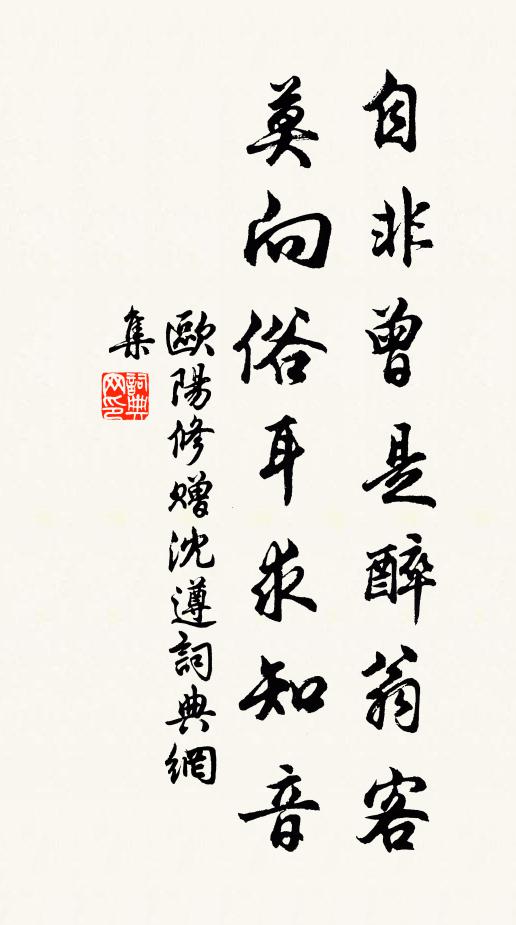 自非曾是醉翁客
莫向俗耳求知音
歐陽修贈沈遵詞典網
集
詞典
网印